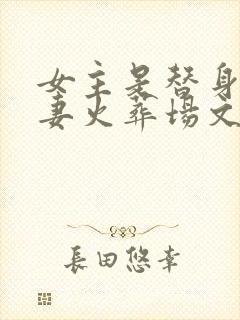 女主是替身
妻火葬場文
長田悠幸